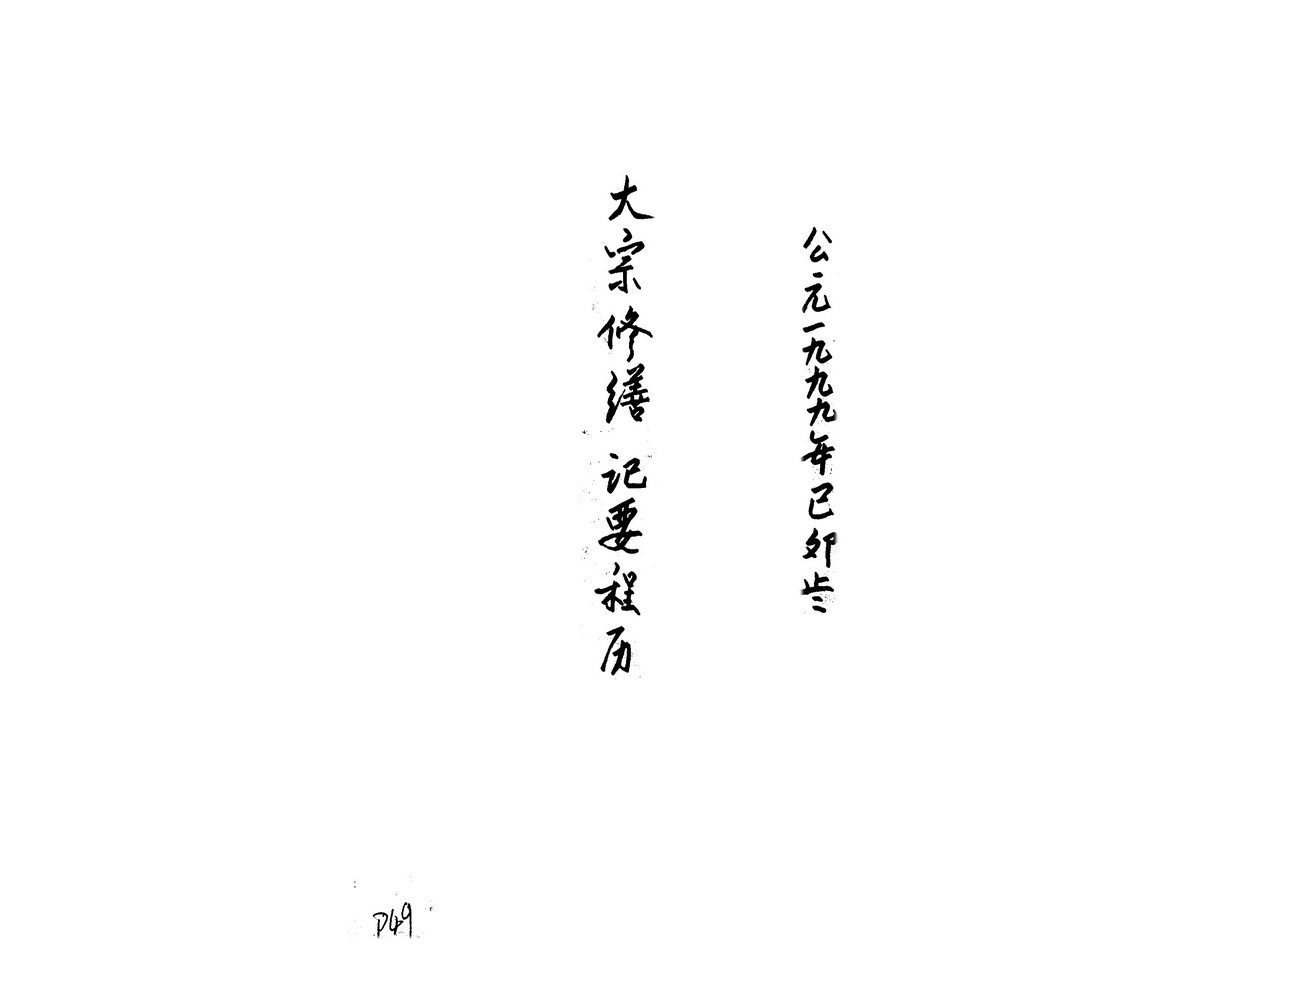 公元一九九九年已卯岁
大宗修缮 记要程历
P49